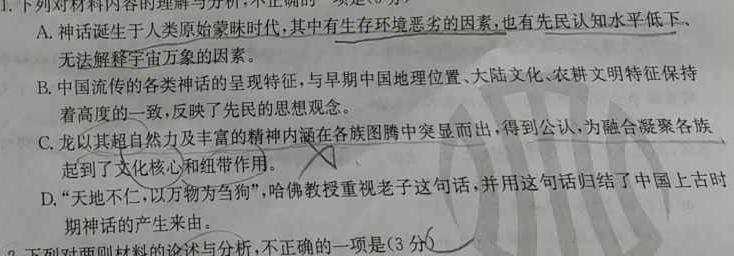 1.下列对材料内容的理解与分析,不正确的一项是(3分)
A.神话诞生于人类原始蒙昧时代,其中有生存环境恶劣的因素,也有先民认知水平低下、
无法解释宇宙万象的因素。
B.中国流传的各类神话的呈现特征,与早期中国地理位置、大陆文化、农耕文明特征保持
着高度的一致,反映了先民的思想观念。
C.龙以其超自然力及丰富的精神内涵在各族图腾中突显而出,得到公认,为融合凝聚各族
起到了文化核心和纽带作用。
D.“天地不仁,以万物为刍狗”,哈佛教授重视老子这句话,并用这句话归结了中国上古时
期神话的产生来由。
2.下列对两则材料的论述与分析,不正确的一项是(3分)